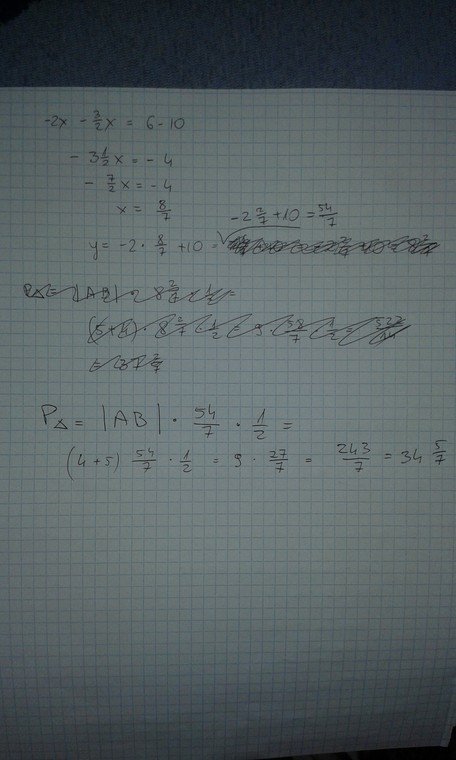 -2x - 3/2 x = 6 - 10
- 3 1/2 x = - 4
- 7/2 x = - 4
x = 8/7
-2 2/7 + 10 = 54/7
y = -2 · 8/7 + 10 =
P△ = |AB| · 54/7 · 1/2 =
(4+5) 54/7 · 1/2 = 9 · 27/7 = 243/7 = 34 5/7